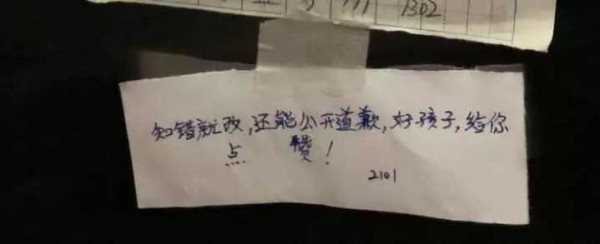 1302
知错就改,还能公开道歉,好孩子,给你
点 赞!
2101